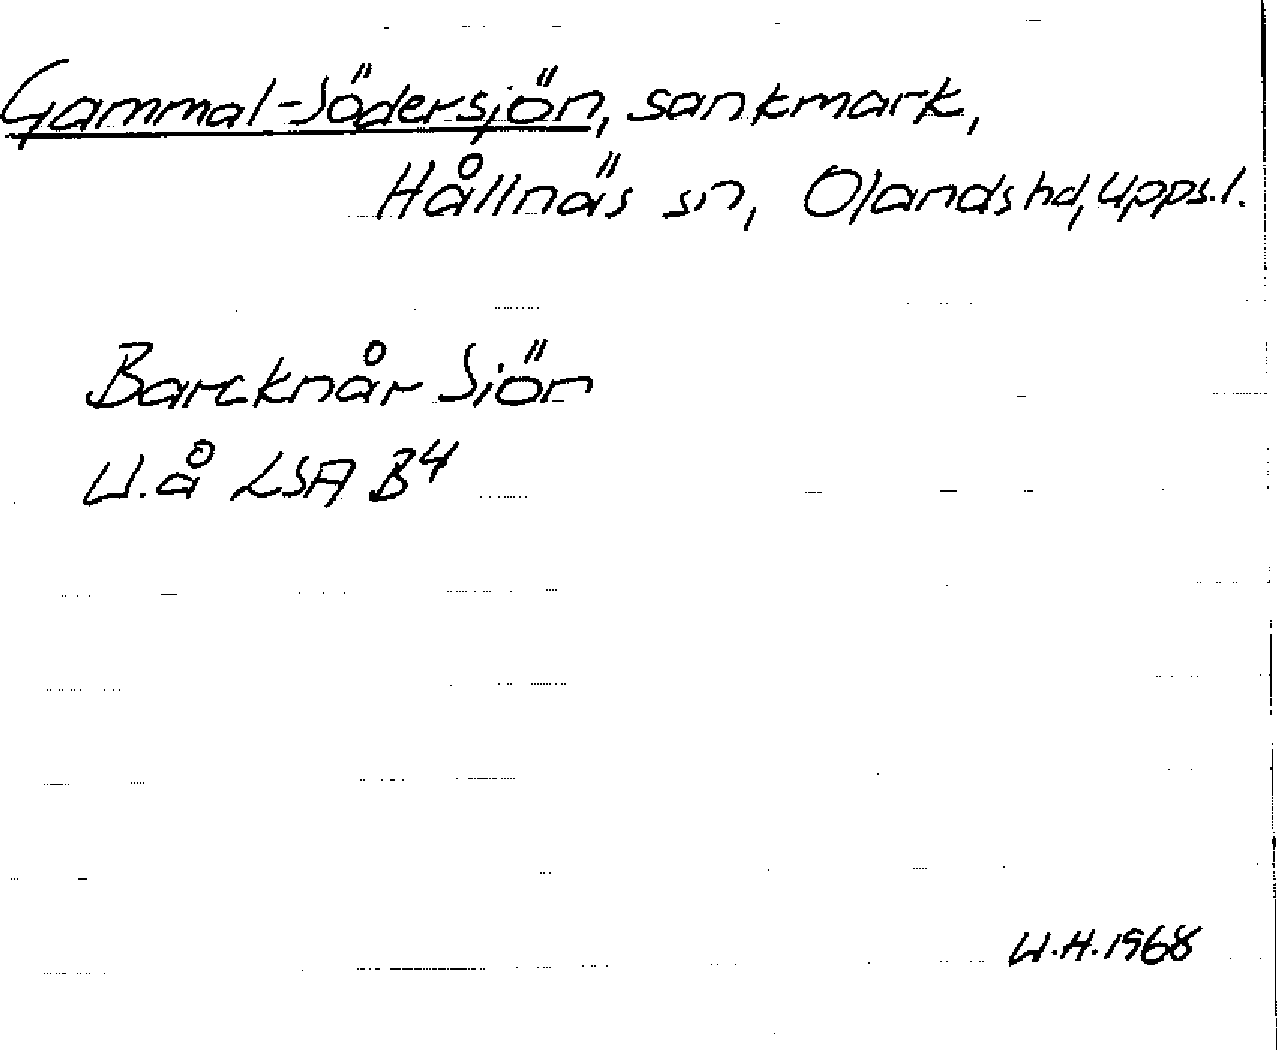 Gammal-Södersjön, sankmark,
Hållnäs sn, Olands hd, Upps.l.
Barcknår Siön
U.å LSA B4
U.H. 1968